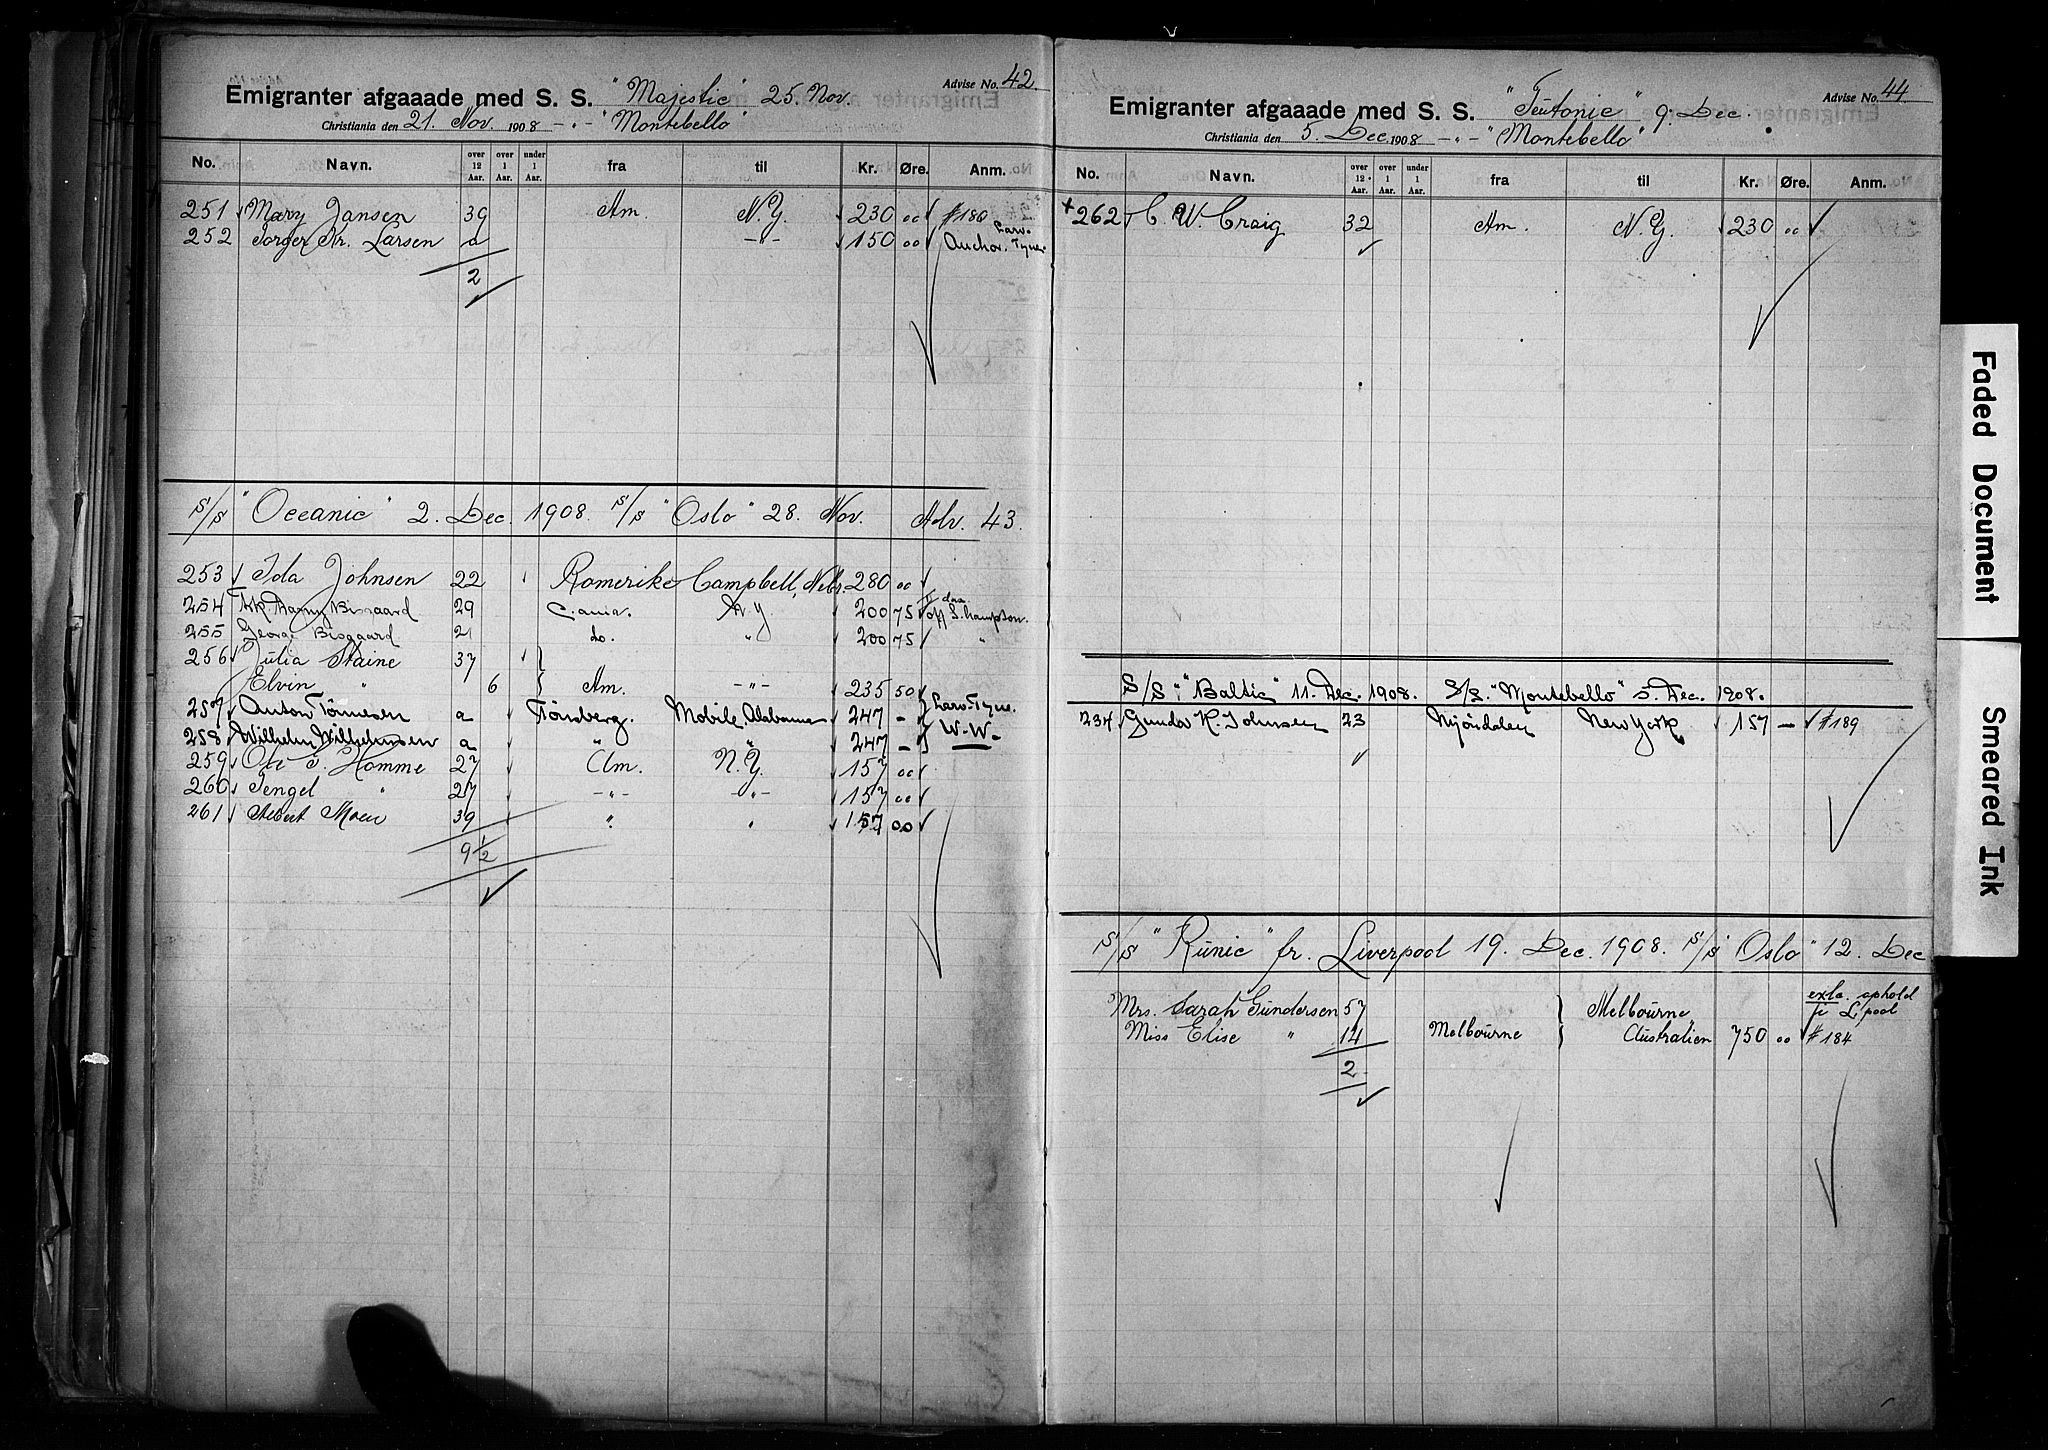 Advise No. 42
Emigranter afgaaade med S. S. "Majestic" 25. Nov.
Christiania den 21. Nov. 1908 -"- "Montebello"
No. Navn. over 12 Aar. over 1 Aar. under 1 Aar. fra til Kr. Øre. Anm.
251 Mary Jansen 39 Am. N.Y. 230 00 #180
252 Torger Kr. Larsen a -"- 150 00 Anchor. Larv. Tyne.
2
S/S "Oceanic" 2. Dec. 1908. S/S "Oslo" 28. Nov. Adv. 43.
253 Ida Johnsen 22 Romerike Campbell, Nebr. 280 00
254 Frk. Dagny Bisgaard 29 C.ania. N.Y. 200 75 off S.hampton.
255 George Bisgaard 21 do. " 200 75 "
256 Julia Staine 37 }
Elvin " 6 } Am. -"- 235 50
257 Anton Tönnesen a Tönsberg. Mobile, Alabama 247 - Larv-Tyne.
258 Wilhelm Wilhelmsen a " " 247 - W.W-
259 Ole T. Homme 27 Am. N.Y. 157 00
260 Tengel " 27 -"- -"- 157 00
261 Albert Moen 39 " " 157 00
9 1/2
Advise No. 44
Emigranter afgaaade med S. S. "Teutonic" 9. Dec.
Christiania den 5. Dec. 1908 -"- "Montebello"
No. Navn. over 12 Aar. over 1 Aar. under 1 Aar. fra til Kr. Øre. Anm.
+262 C. W. Craig 32 Am. N.Y. 230 00
S/S "Baltic" 11. Dec. 1908. S/S. "Montebello" 5. Dec. 1908.
234 Gunda K. Johnsen 23 Mjöndalen New York 157 - #189
S/S "Runic" fr. Liverpool 19. Dec. 1908. S/S "Oslo" 12. Dec
Mrs. Sarah Gundersen 57 } Melbourne extra ophold i L'pool
Miss Elise " 14 Melbourne } Australien 750 00 #184
2
Faded Document
Smeared Ink